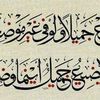 جميلا ولو في غير موضع
يضيع جميل أينما وضع